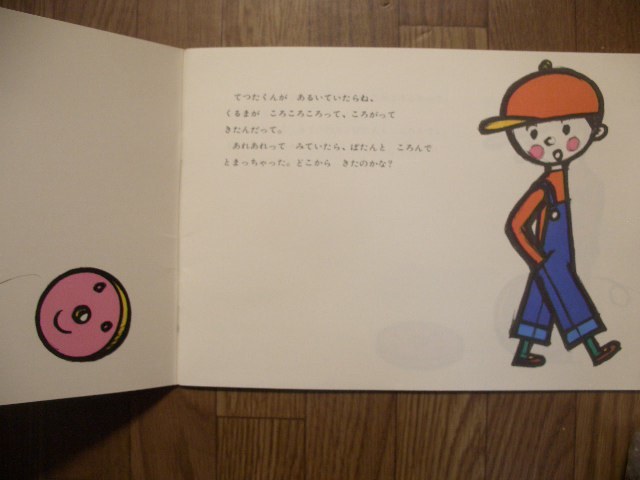 てつたくんが　あるいていたらね、
くるまが　ころころころって、ころがって
きたんだって。
あれあれって　みていたら、ぱたんと　ころんで
とまっちゃった。どこから　きたのかな？